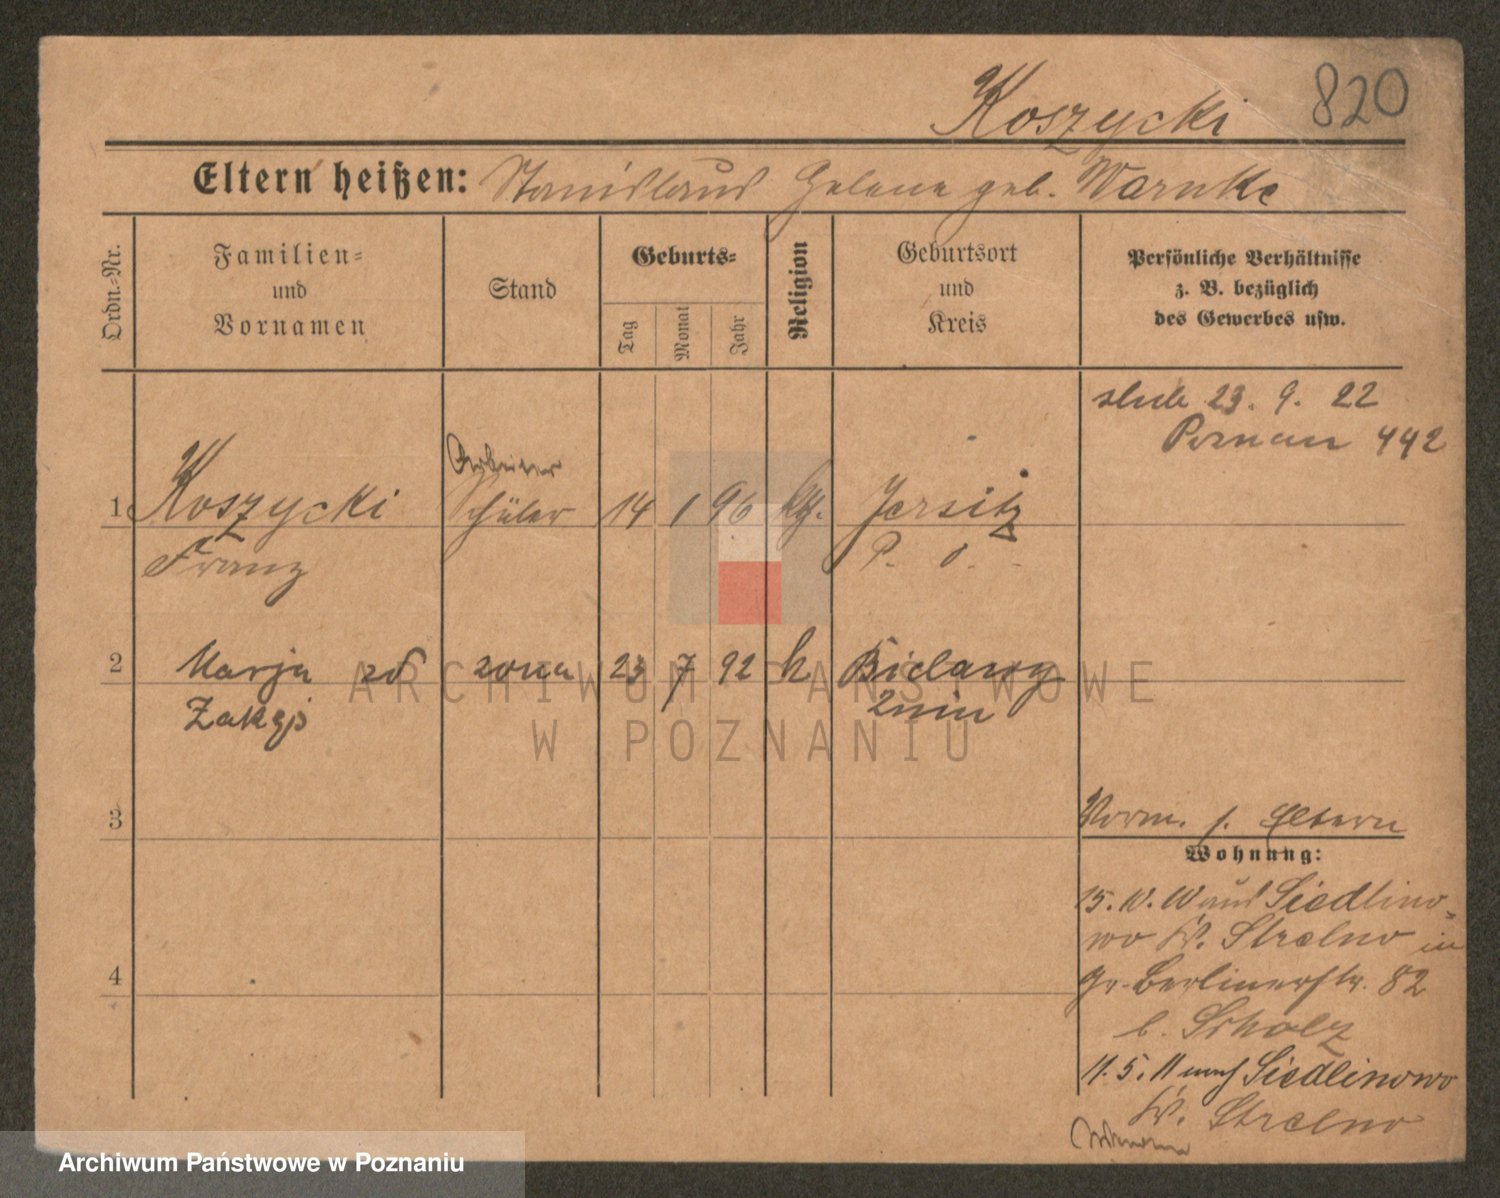 Koszycki 820
Eltern heißen: Stanislaus Helene geb. Warnke
Ordn.-Nr.
Familien-
und
Vornamen
Stand
Geburts-
Tag
Monat
Jahr
Religion
Geburtsort
und
Kreis
Persönliche Verhältnisse
z. B. bezüglich
des Gewerbes usw.
ślub 23. 9. 22
Poznań 442
Arbeiter
1 Koszycki Schüler 14 1 96 kth. Jersitz
Franz P. O.
2 Marja zd żona 23 7 92 k Bielawy
Zakęś Żnin
3
4
Vorm. s. Eltern
Wohnung:
15. 10. 10 aus Siedlino-
wo Kr. Strelno in
Gr. Berlinerstr. 82
b. Scholz
11. 5. 11 nach Siedlinowo
Kr. Strelno
ARCHIWUM PAŃSTWOWE
W POZNANIU
Archiwum Państwowe w Poznaniu